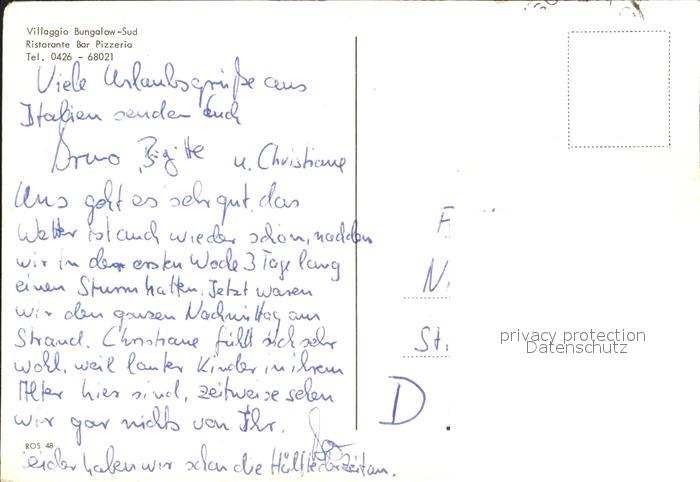 Villaggio Bungalow-Sud
Ristorante Bar Pizzeria
Tel. 0426 - 68021
Viele Urlaubsgrüße aus
Italien senden Euch
Arno, Brigitte u. Christiane
Uns geht es sehr gut, das
Wetter ist auch wieder schön, nachdem
wir in der ersten Woche 3 Tage lang
einen Sturm hatten. Jetzt waren
wir den ganzen Nachmittag am
Strand. Christiane fühlt sich sehr
wohl, weil lauter Kinder in ihrem
Alter hier sind, zeitweise sehen
wir gar nichts von Ihr.
ROS 48
Leider haben wir schon die Hälfte der Zeit um.
F.
N.
St.
D
privacy protection
Datenschutz